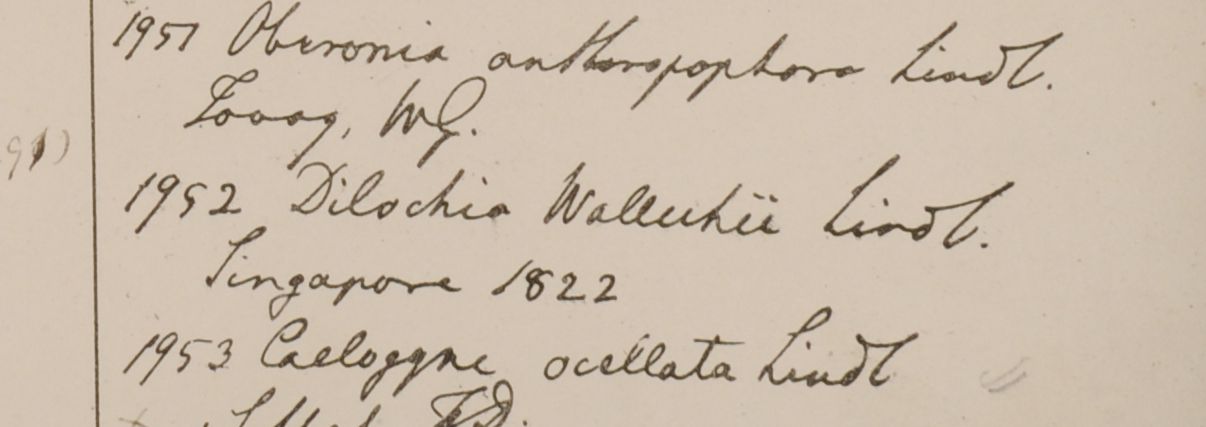 1951 Oberonia anthropophora Lindl.
Tavoy, WG.
1952 Dilochia Wallichii Lindl.
Singapore 1822
1953 Caelogyne ocellata Lindl